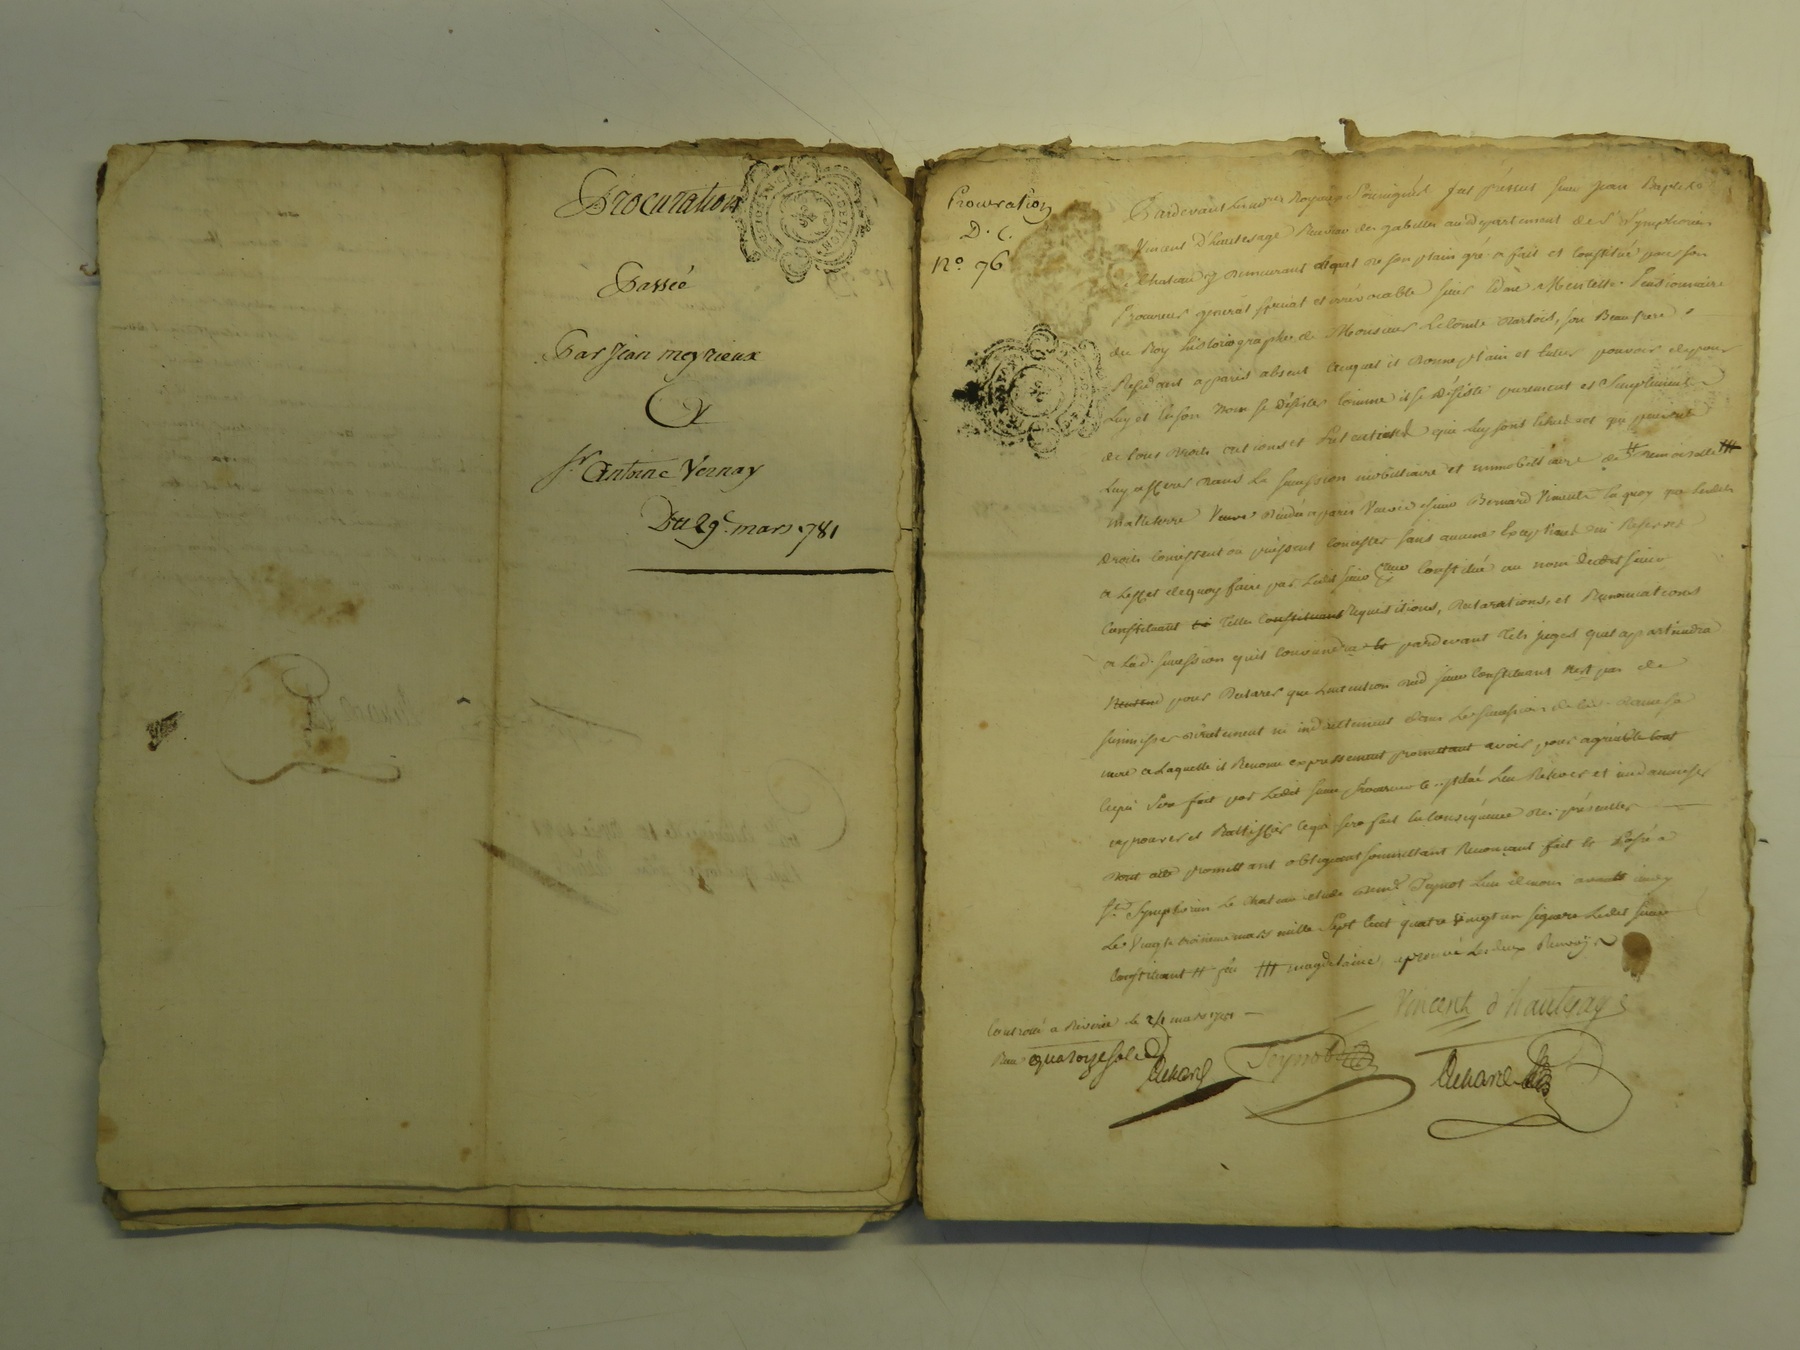 Procuration
Passée
Par Jean meyrieux
Et
Sr. Antoine Vernay
Du 29e. mars 1781
Procuration
D. C.
No. 76
Pardevant les nores Royaux Soussignés fut présent sieur jean Baptiste
Vincent D'hautesage Receveur des gabelles au département de St Symphorien
le Chateau y demeurant lequel de son plain gré a fait et constitué pour son
Procureur général spécial et irrévocable sieur Edme Mentelle Pensionnaire
du Roy historiographe de Monsieur le Comte d'artois, son Beau frere
Residant a paris absent auquel il donne plain et entier pouvoir de pour
luy et en son nom se désister comme il se désiste purement et simplement
de tous droits actions et pretentions qui luy sont échus et qui peuvent
luy afferer dans la succession mobilliaire et immobilliaire de demoiselle
Malleterre Veuve Bernard Vincent a quoy que lesdits
droits consistent ou puissent consister sans aucune exception ni Reserves
a l'effet de quoy faire par ledit sieur constitué au nom dudit sieur
Constituant telles Constituant requisitions, declarations, et Renonciations
a lad. succession qu'il conviendra pardevant tels juges qu'il appartiendra
pour declarer que l'intention dud sieur constituant n'est pas de
simmiscer directement ni indirectement dans la succession de lad. dame sa
mere a laquelle il Renonce expressement promettant avoir pour agréable tout
ce qui sera fait par ledit sieur procureur constitué l'en Relever et indamniser
approuver et Rattiffier ce qui sera fait en conséquence des présentes
dont acte promettant obligeant soumettant Renonçant fait et Passé a
St. Symphorien le chateau etude de me. Teynot l'un de nous
le vingt troisieme mars mille sept cent quatre vingt un signare ledit sieur
Constituant magdelaine, aprouvé les deux Renvoys
Vincent d'hautesage
Controllé a Riverie le 24 mars 1781
Reçu quatorze sols
Teynot